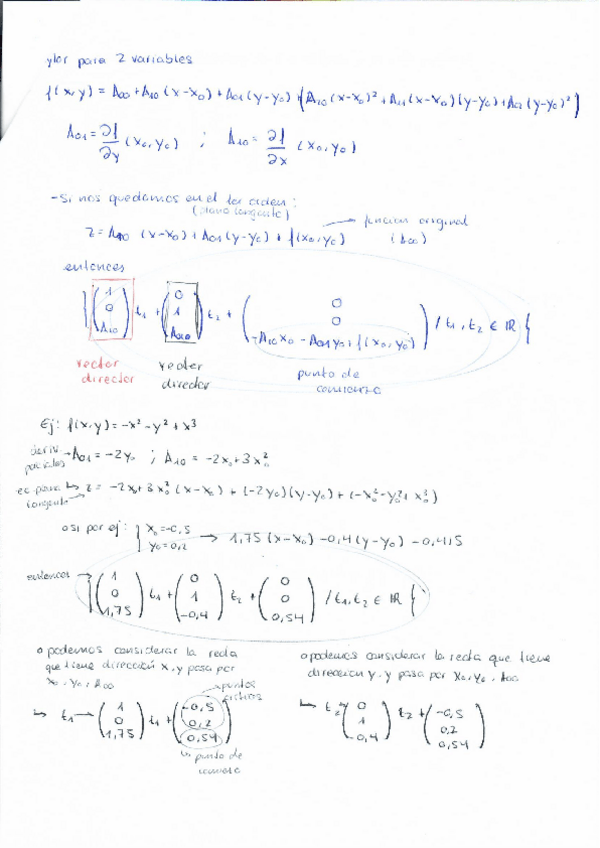 ylor para 2 variables
f(x,y) = A00 + A10 (x-x0) + A01 (y-y0) + (A20 (x-x0)² + A11 (x-x0)(y-y0) + A02 (y-y0)²)
A01 = ∂f/∂y (x0, y0) ; A10 = ∂f/∂x (x0, y0)
- Si nos quedamos en el 1er orden :
(plano tangente)
z = A10 (x-x0) + A01 (y-y0) + f(x0, y0) → funcion original
(A00)
entonces
{ (1 0 A10) t1 + (0 1 A01) t2 + (0 0 -A10x0 - A01y0 + f(x0,y0)) / t1, t2 ∈ IR }
vector director
vector director
punto de comienzo
Ej: f(x,y) = -x² - y² + x³
deriv parciales → A01 = -2y0 ; A10 = -2x0 + 3x0²
ec. plano tangente → z = -2x0 + 3x0² (x-x0) + (-2y0)(y-y0) + (-x0² - y0² + x0³)
o si por ej: { x0 = -0,5 y0 = 0,2 → 1,75 (x-x0) - 0,4 (y-y0) - 0,415
entonces → { (1 0 1,75) t1 + (0 1 -0,4) t2 + (0 0 0,54) / t1, t2 ∈ IR }
o podemos considerar la recta
que tiene dirección x, y pasa por
x0, y0, A00
↳ t1 → (1 0 1,75) t1 + (-0,5 0,2 0,54)
→ puntos
↳ punto de comienzo
o podemos considerar la recta que tiene
direccion y, y pasa por x0, y0, A00
↳ t2 (0 1 -0,4) t2 + (-0,5 0,2 0,54)